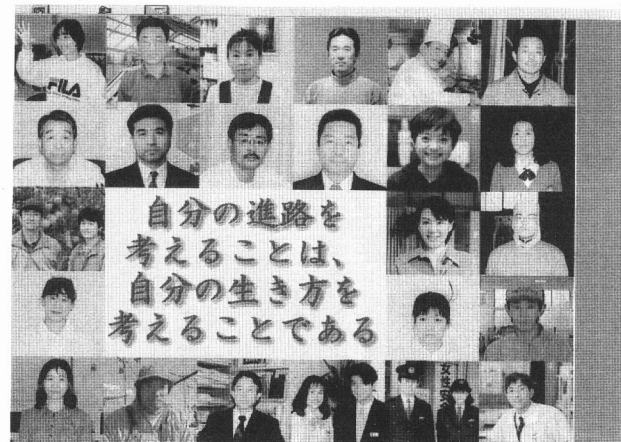 FILA
自分の進路を
考えることは、
自分の生き方を
考えることである